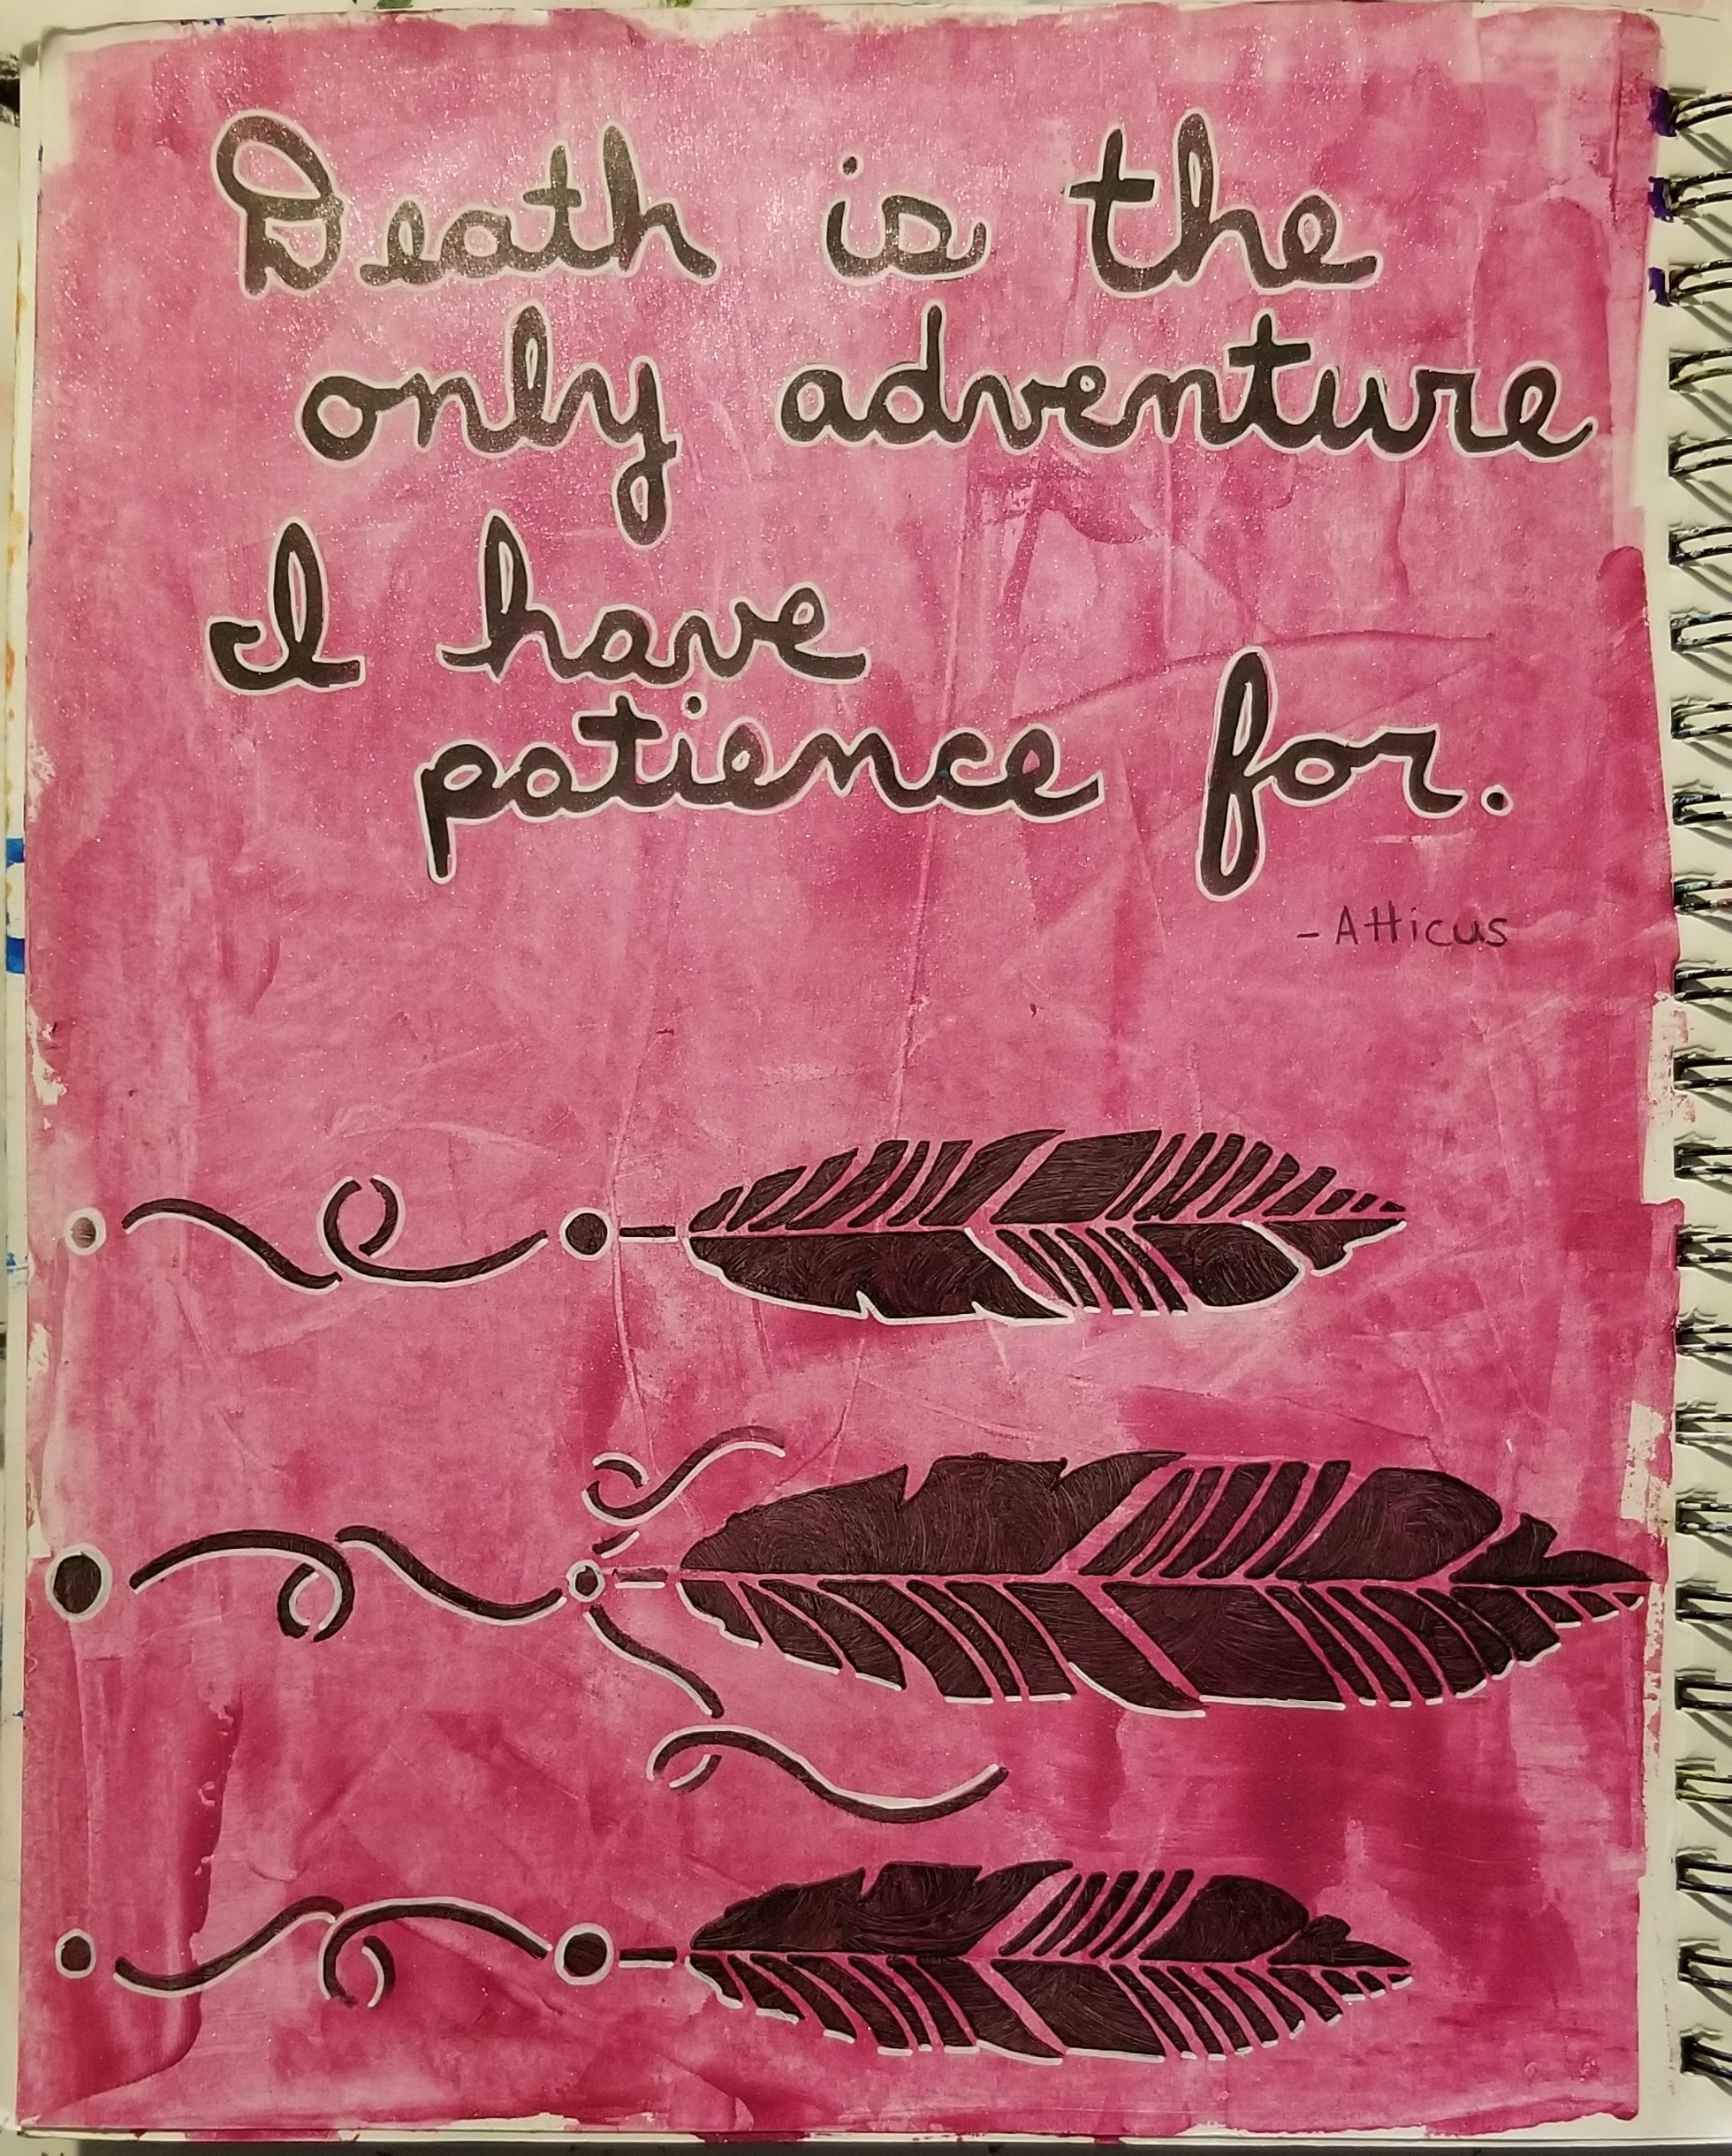 Death is the
only adventure
I have
patience for.
- Atticus